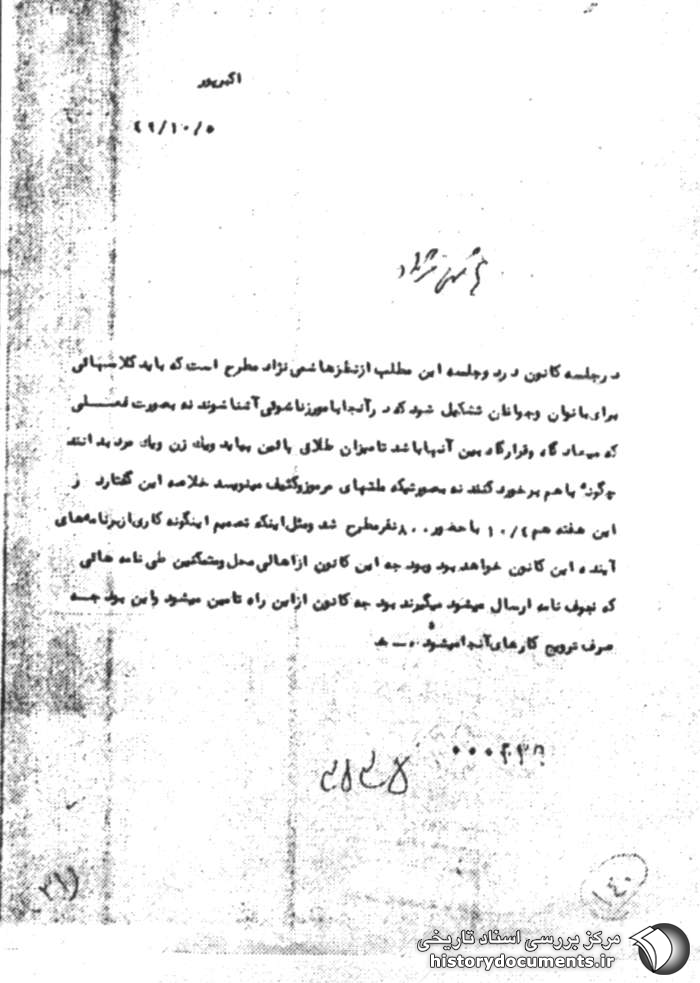 اکبرپور
٤٩/١٠/٥
هاشمی نژاد
درجلسه کانون درد وجلسه این مطلب ازنظرهاشمی نژاد مطرح است که باید کلاسهائی
برای بانوان وجوانان تشکیل شود که درآنجا بامورزناشوئی آشنا شوند نه بصورت فعلی
که میعادگاه وقرارگاه بین آنها باشد تامیزان طلاق پائین بیاید ویک زن ویک مرد بدانند
چگونه باهم برخورد کنند نه بصورتیکه مینویسد خلاصه این گفتار در
این هفته هم ١٠/٤ با حضور ٨٠٠ نفرمطرح شد ومثل اینکه تصمیم اینگونه کاری ازبرنامه‌های
آینده این کانون خواهد بود وبودجه این کانون ازاهالی محل ومتمکنین طی نامه هائی
که بطرف نامه ارسال میشود میگیرند بودجه کانون ازاین راه تامین میشود واین بودجه
صرف ترویج کارهای آنجا میشود
٠٠٠٢٠٣٨
٣١١
١٤٠
مرکز بررسی اسناد تاریخی
historydocuments.ir